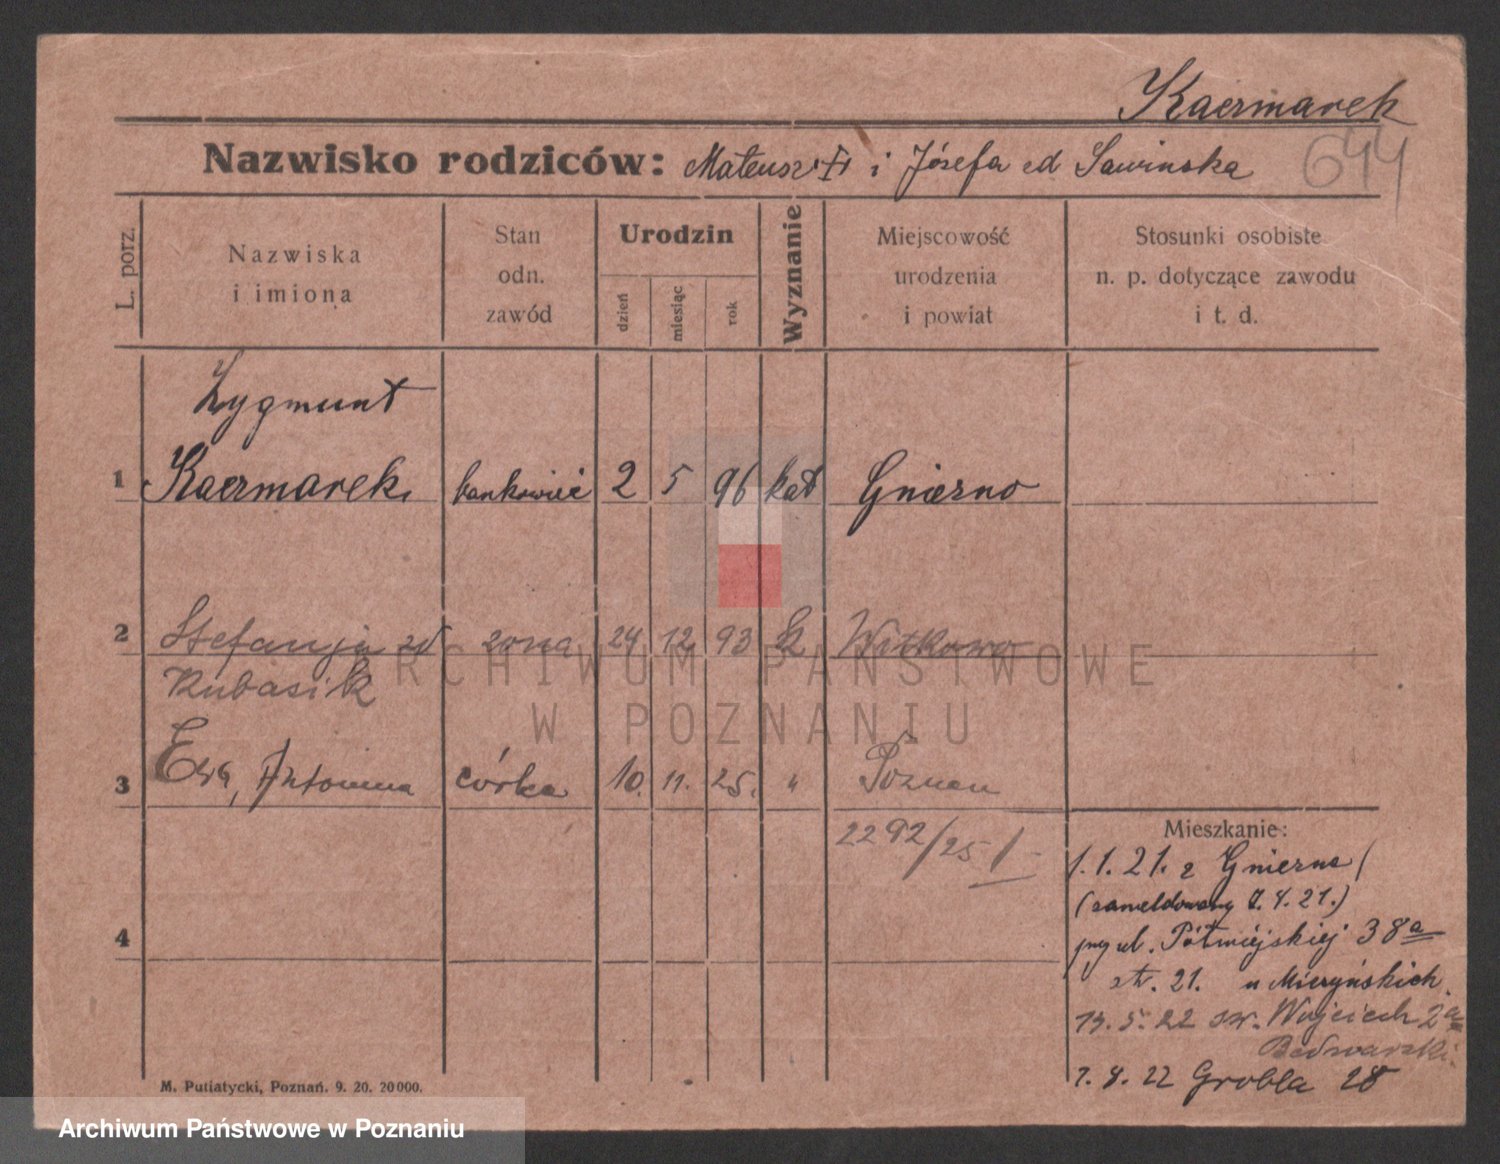 Kaczmarek
Nazwisko rodziców: Mateusz i Józefa zd Sawinska
644
L. porz.
Nazwiska
i imiona
Stan
odn.
zawód
Urodzin
dzień
miesiąc
rok
Wyznanie
Miejscowość
urodzenia
i powiat
Stosunki osobiste
n. p. dotyczące zawodu
i t. d.
Zygmunt
1 Kaczmarek bankowiec 2 5 96 kat Gniezno
2 Stefanja zd żona 24 12 93 k Witkowo
Kubasik
3 Ewa, Antonina córka 10. 11. 25. " Poznan
2292/25
4
Mieszkanie:
1.1.21. z Gniezna
(zameldowany 7.4.21.)
przy ul. Półwiejskiej 38a
21. u Mieczyńskich
13.5.22 św. Wojciech 2a
Bednarski
7.8.22 Grobla 28
M. Putiatycki, Poznań. 9. 20. 20000.
ARCHIWUM PAŃSTWOWE
W POZNANIU
Archiwum Państwowe w Poznaniu